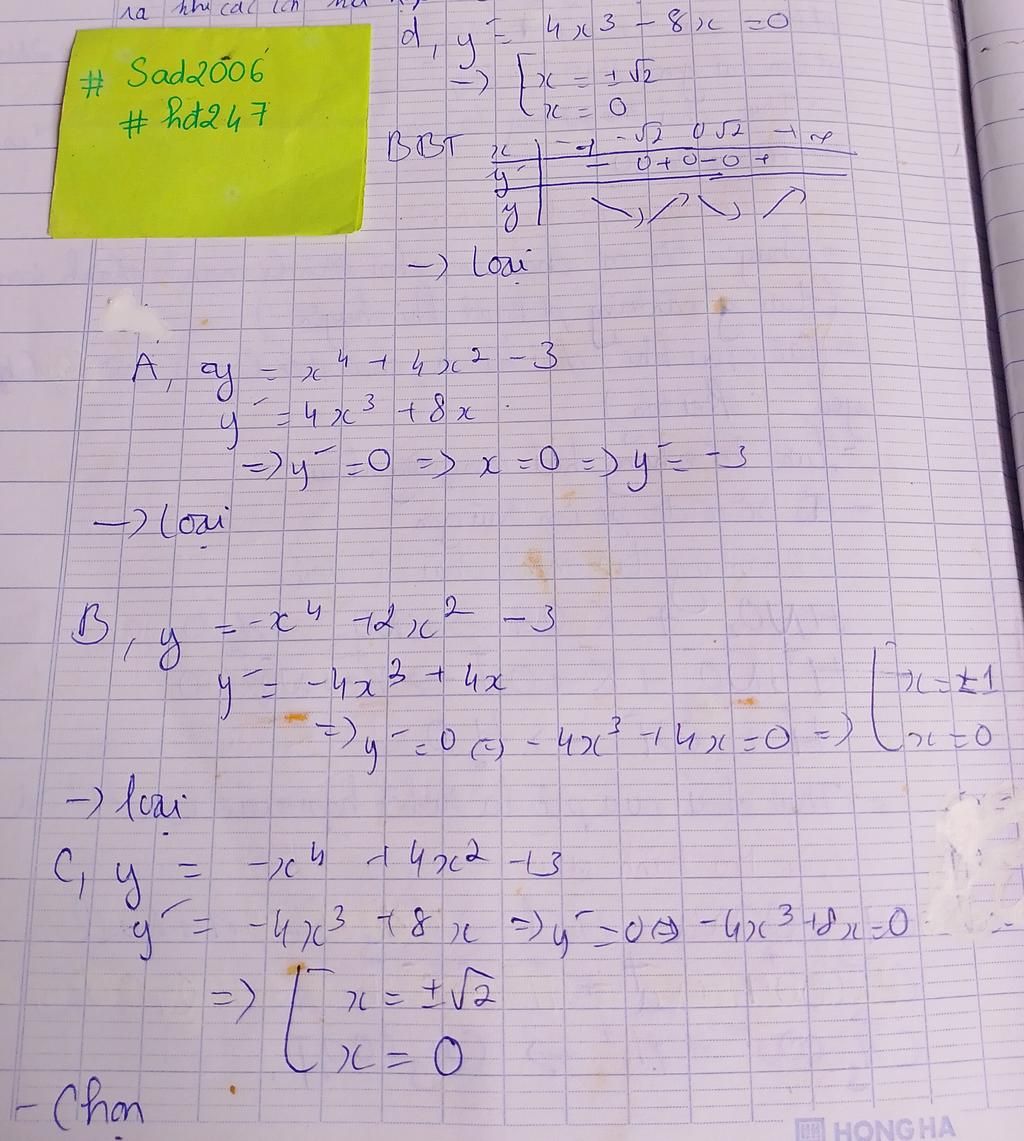 # Sad2006
# hdt247
d, y' = 4x3 - 8x = 0
→ [ x = ±√2
x = 0
BBT x | -∞ -√2 0 √2 +∞
y' | - 0 + 0 - 0 +
y | ↘ ↗ ↘ ↗
→ Loại
A, y = x⁴ + 4x² - 3
y' = 4x³ + 8x
⇒ y' = 0 ⇒ x = 0 ⇒ y' = -3
→ Loại
B, y = -x⁴ + 2x² - 3
y' = -4x³ + 4x
⇒ y' = 0 ⇔ -4x³ + 4x = 0 ⇒ [ x = ±1
x = 0
→ loại
C, y = -x⁴ + 4x² - 3
y' = -4x³ + 8x ⇒ y' = 0 ⇔ -4x³ + 8x = 0
⇒ [ x = ±√2
x = 0
- Chọn
HONG HA